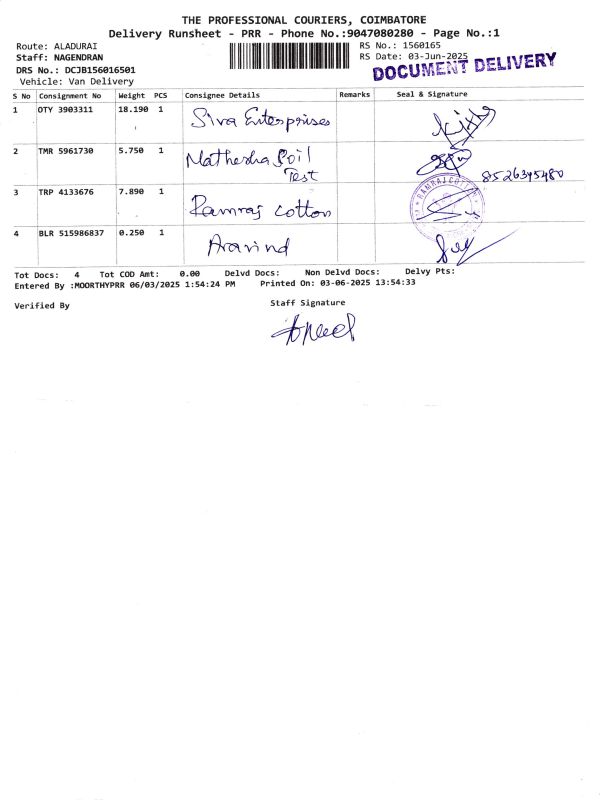 THE PROFESSIONAL COURIERS, COIMBATORE
Delivery Runsheet - PRR - Phone No.:9047080280 - Page No.:1
Route: ALADURAI
RS No.: 1560165
Staff: NAGENDRAN
RS Date: 03-Jun-2025
DRS No.: DCJB156016501
DOCUMENT DELIVERY
Vehicle: Van Delivery
S No Consignment No Weight PCS Consignee Details Remarks Seal & Signature
1 OTY 3903311 18.190 1 Siva Enterprises
2 TMR 5961730 5.750 1 Mathesha Soil
Test 8526345480
3 TRP 4133676 7.890 1 Ramraj cotton RAMRAJ COTTON
4 BLR 515986837 0.250 1 Aravind
Tot Docs: 4 Tot COD Amt: 0.00 Delvd Docs: Non Delvd Docs: Delvy Pts:
Entered By :MOORTHYPRR 06/03/2025 1:54:24 PM Printed On: 03-06-2025 13:54:33
Verified By
Staff Signature